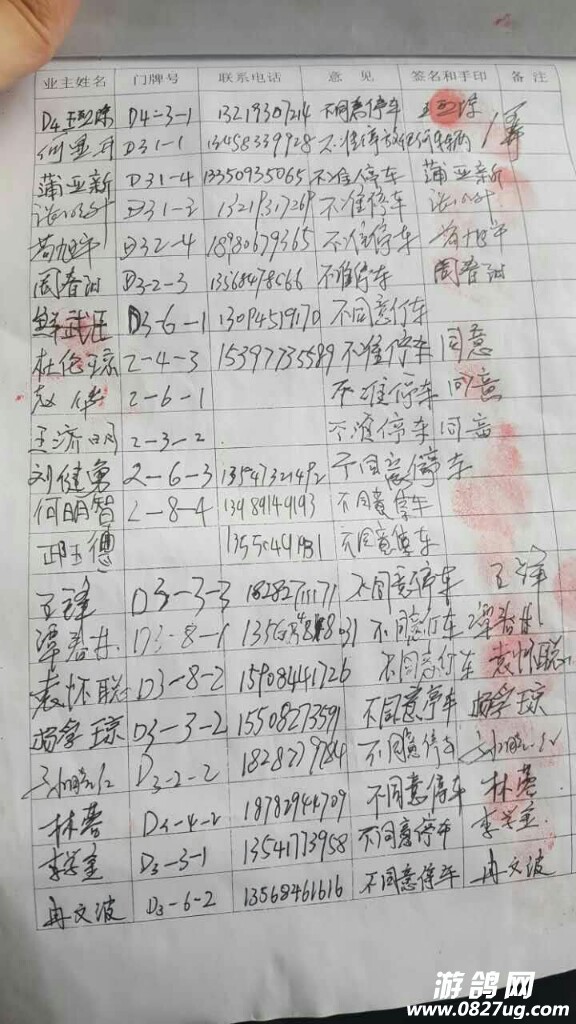 业主姓名 门牌号 联系电话 意见 签名和手印 备注
D4-3-1 13219307214 不同意停车
D31-1 13458339928 不准停放任何车辆
蒲亚新 D31-4 13350935065 不准停车 蒲亚新
D31-2 1321931726 不准停车
苟旭平 D32-4 18980679365 不准停车 苟旭平
周春 D3-2-3 不准停车 周春
鲜武 D3-6-1 13094519170 不同意停车
杜伦琼 2-4-3 15397735589 不准停车 同意
赵 2-6-1 不准停车 同意
王济明 2-3-2 不准停车 同意
刘健勇 2-6-3 13547321492 不同意停车
何明智 2-8-4 13989149193 不同意停车
邱玉德 不同意停车
王锋 D3-3-3 不同意停车 王锋
谭 D3-8-1 不同意停车 谭
袁怀联 D3-8-2 15908441726 不同意停车 袁怀联
杨学琼 D3-3-2 15508273591 不同意停车 杨学琼
D3-2-2 不同意停车
林蓉 D3-4-2 18782944709 不同意停车 林蓉
李学金 D3-3-1 13541773958 不同意停车 李学金
冉文波 D3-6-2 13568461616 不同意停车 冉文波
游鸽网
www.0827ug.com